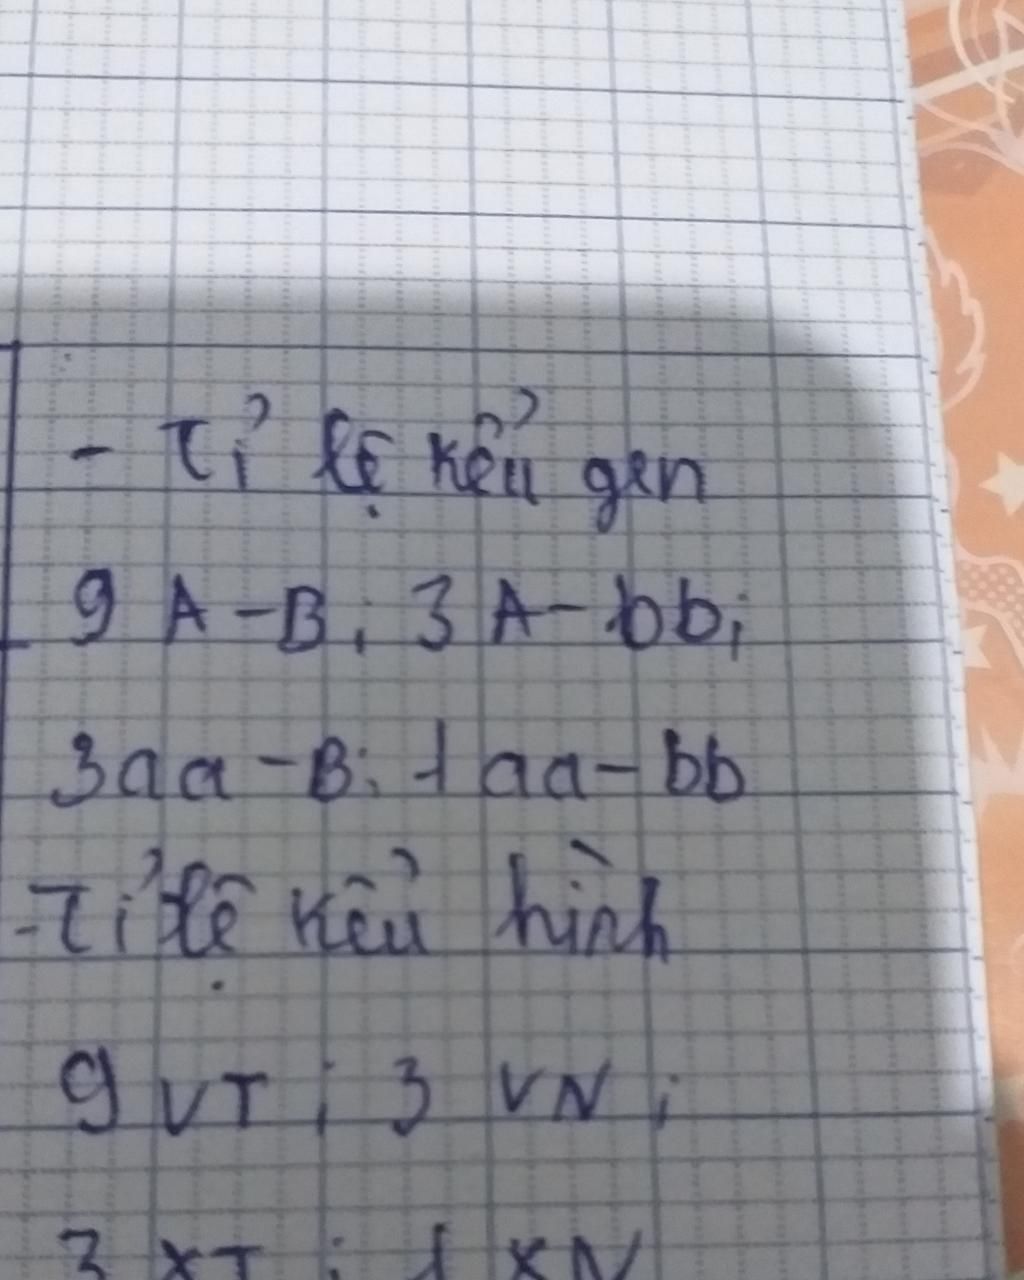 - Tỉ lệ kểu gen
9 A-B; 3 A-bb;
3aa-B: 1 aa-bb
-Tỉ lệ kểu hình
9 VT ; 3 VN ;
3 XT ; 1 XN